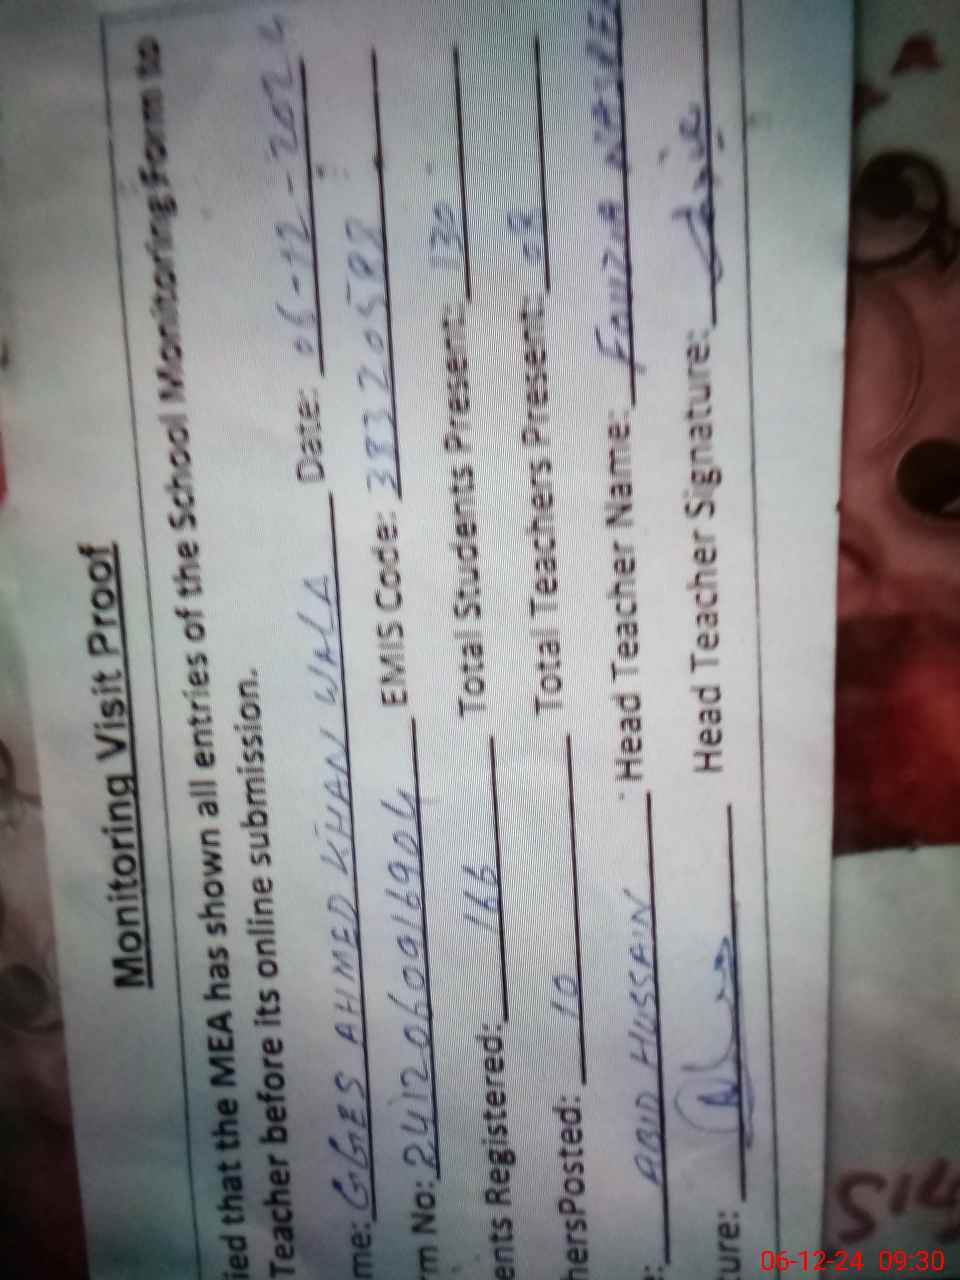 Monitoring Visit Proof
ied that the MEA has shown all entries of the School Monitoring Form to
Teacher before its online submission.
me: GGES AHMED KHAN WALA Date: 06-12-2024
rm No: 2412060916904 EMIS Code:
ents Registered: 166 Total Students Present: 130
hersPosted: 10 Total Teachers Present:
: ABID HUSSAIN Head Teacher Name: FAUZIA
ure: Head Teacher Signature:
06-12-24 09:30